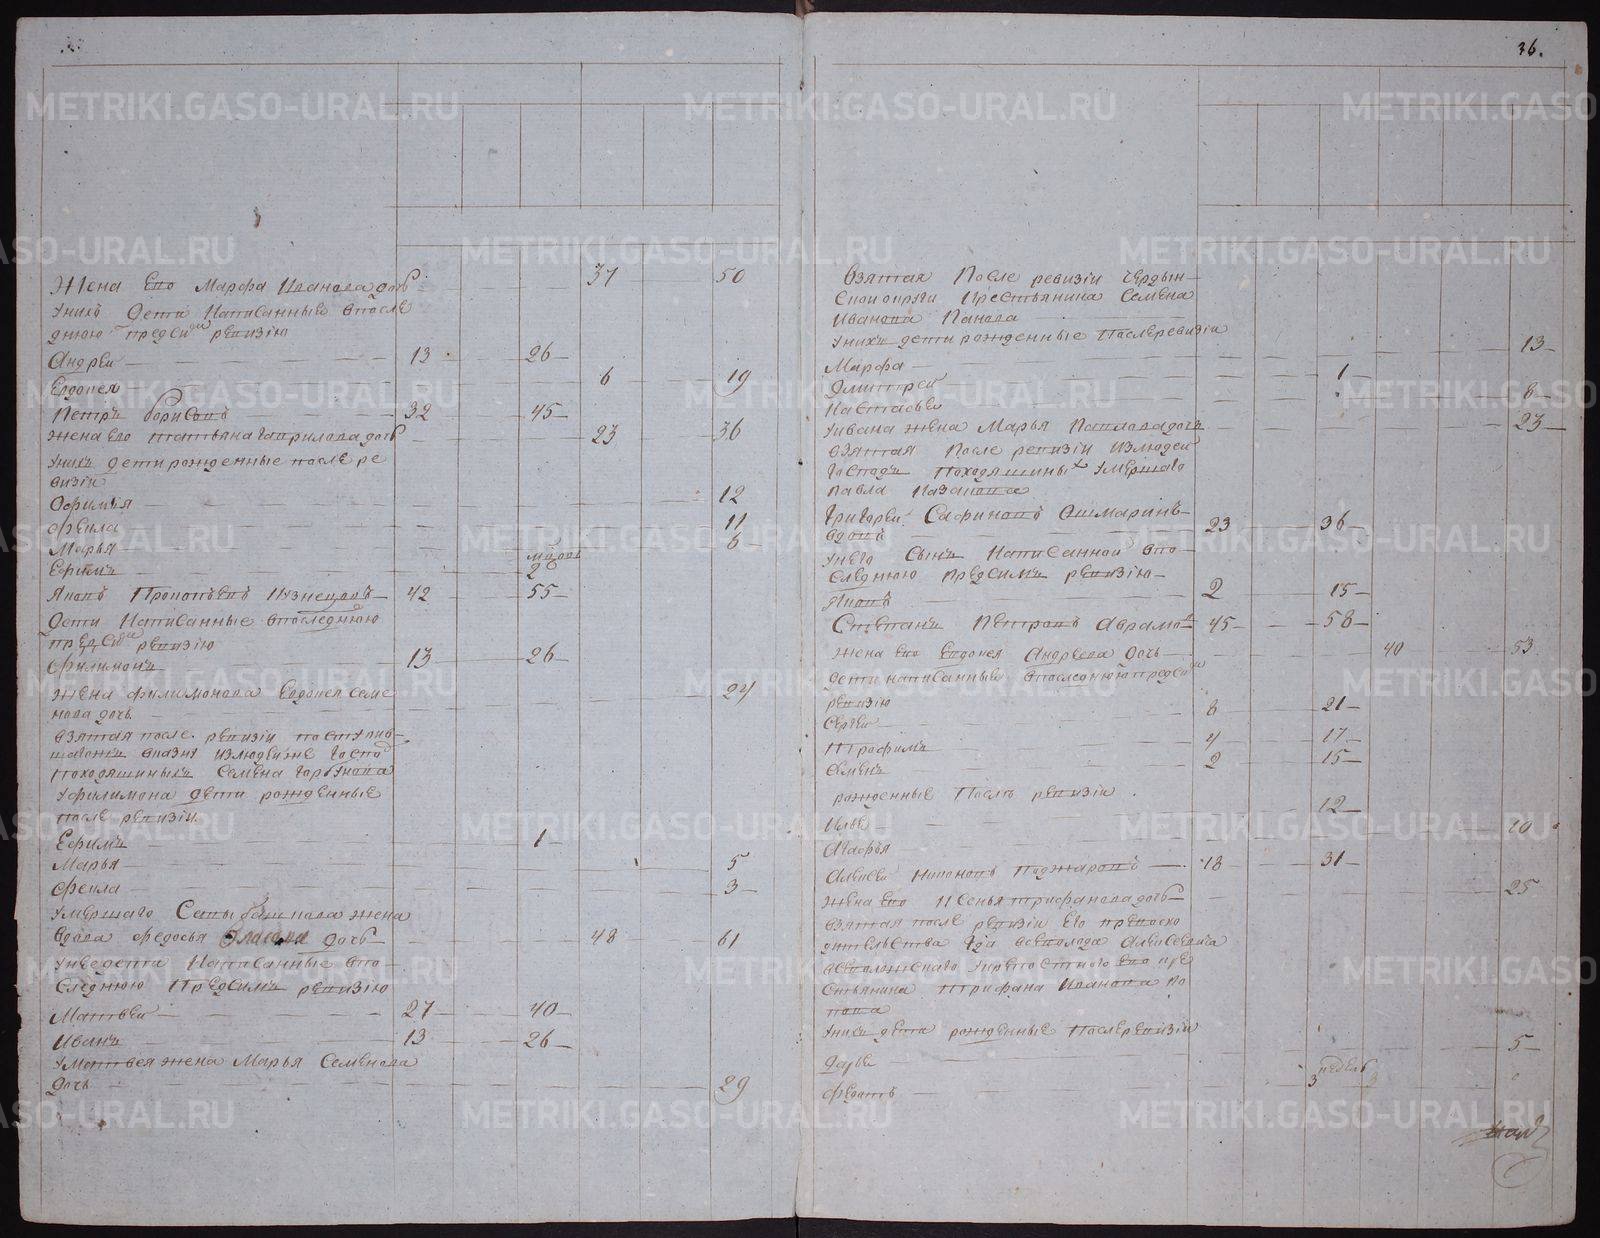 36.
Жена Ево Марфа Иванова дочь 37 50
Унихъ Дети Написанныя впосле
днюю предсимъ ревизию
Андрей 13 26
Евдокея 6 19
Петръ Борисовъ 32 45
Жена ево Татьяна Гаврилова дочь 23 36
Унихъ дети рожденные после ре
визии
Офимья 12
Фекла 11
Марья 6
Ефимъ 2
Яковъ Прокопьевъ Кузнецовъ 42 55
Дети Написанные впоследнюю
предсимъ ревизию
Филимонъ 13 26
Жена Филимонова Евдокея Семе
нова дочь 24
взятая после ревизии поступив-
шагожъ вказну излюдейже Госпо
Походяшиныхъ Семена Горбунова
Уфилимона дети рожденные
после ревизии
Ефимъ 1
Марья 5
Фекла 3
Умершаго Савы жена
вдова Федосья Власова дочь 48 61
Унее дети Написанные впо-
следнюю Предсимъ ревизию
Матвей 27 40
Иванъ 13 26
Уматвея жена Марья Семенова
дочь 29
взятая После ревизии Чердын-
скои округи Крестьянина Семена
Иванова Панова
Унихъ дети рожденные Послеревизии
Марфа 13
Дмитрей 1
Настасья 8
Уивана жена Марья Павлова дочь 23
взятая После ревизии Излюдей
Господъ Походяшиныхъ Умершаго
Павла Казакова
Григорей Сафоновъ Ошмаринъ 23 36
вдовъ
Унего Сынъ Написанной впо-
следнюю предсимъ ревизию
Яковъ 2 15
Степанъ Петровъ Аврамовъ 45 58
Жена Ево Евдокея Андреева дочь 40 53
Дети написанныя впоследнюю предсимъ
ревизию
Сергей 8 21
Трофимъ 4 17
Семенъ 2 15
рожденные После ревизии
Илья 12
Агафья 10
Алексей Никоновъ Поджаровъ 18 31
Жена ево Ксенья Трифанова дочь 25
взятая после ревизии Его превосхо
дительства Гда всеволода Алексеевича
всеволожскаго укрепостного ево кре
стьянина Трифана Иванова По
пова
Унихъ дети рожденные Послеревизии
Дарья 5
недель
Федотъ 3